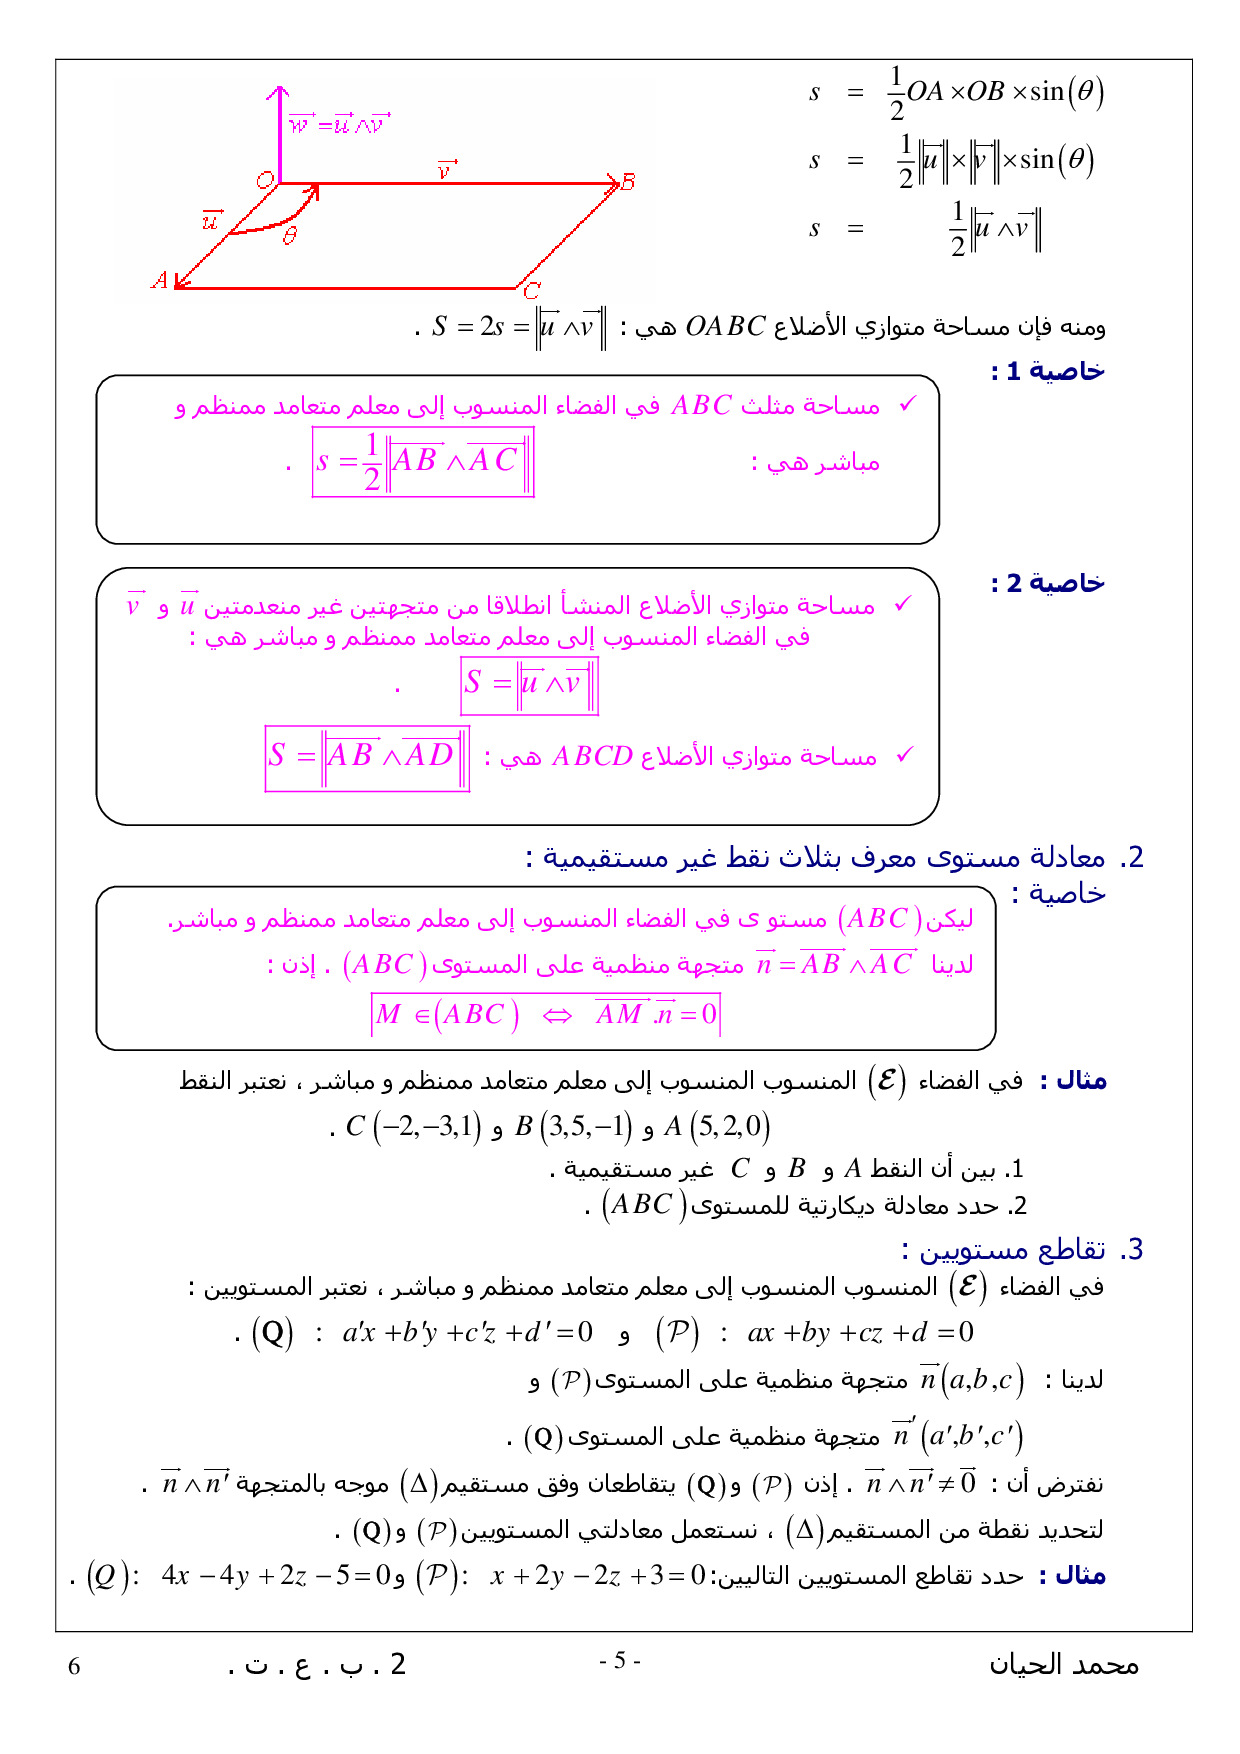 s = 1/2 OA × OB × sin(θ)
s = 1/2 ‖u⃗‖ × ‖v⃗‖ × sin(θ)
s = 1/2 ‖u⃗ ∧ v⃗‖
w⃗ = u⃗ ∧ v⃗
v⃗
O
B
u⃗
θ
A
C
ومنه فإن مساحة متوازي الأضلاع OABC هي : S = 2s = ‖u⃗ ∧ v⃗‖ .
خاصية 1 :
✓ مساحة مثلث ABC في الفضاء المنسوب إلى معلم متعامد ممنظم و
مباشر هي : s = 1/2 ‖AB⃗ ∧ AC⃗‖ .
خاصية 2 :
✓ مساحة متوازي الأضلاع المنشأ انطلاقا من متجهتين غير منعدمتين u⃗ و v⃗
في الفضاء المنسوب إلى معلم متعامد ممنظم و مباشر هي :
S = ‖u⃗ ∧ v⃗‖ .
✓ مساحة متوازي الأضلاع ABCD هي : S = ‖AB⃗ ∧ AD⃗‖
2. معادلة مستوى معرف بثلاث نقط غير مستقيمية :
خاصية :
ليكن (ABC) مستو ى في الفضاء المنسوب إلى معلم متعامد ممنظم و مباشر.
لدينا n⃗ = AB⃗ ∧ AC⃗ متجهة منظمية على المستوى (ABC) . إذن :
M ∈ (ABC) ⇔ AM⃗ . n⃗ = 0
مثال : في الفضاء (ℰ) المنسوب المنسوب إلى معلم متعامد ممنظم و مباشر ، نعتبر النقط
A(5,2,0) و B(3,5,−1) و C(−2,−3,1) .
1. بين أن النقط A و B و C غير مستقيمية .
2. حدد معادلة ديكارتية للمستوى (ABC) .
3. تقاطع مستويين :
في الفضاء (ℰ) المنسوب المنسوب إلى معلم متعامد ممنظم و مباشر ، نعتبر المستويين :
(P) : ax + by + cz + d = 0 و (Q) : a'x + b'y + c'z + d' = 0 .
لدينا : n⃗(a,b,c) متجهة منظمية على المستوى (P) و
n⃗'(a',b',c') متجهة منظمية على المستوى (Q) .
نفترض أن : n⃗ ∧ n⃗' ≠ 0⃗ . إذن (P) و (Q) يتقاطعان وفق مستقيم (Δ) موجه بالمتجهة n⃗ ∧ n⃗' .
لتحديد نقطة من المستقيم (Δ) ، نستعمل معادلتي المستويين (P) و (Q) .
مثال : حدد تقاطع المستويين التاليين: (P): x + 2y − 2z + 3 = 0 و (Q): 4x − 4y + 2z − 5 = 0 .
محمد الحيان
- 5 -
2 . ب . ع . ت .
6